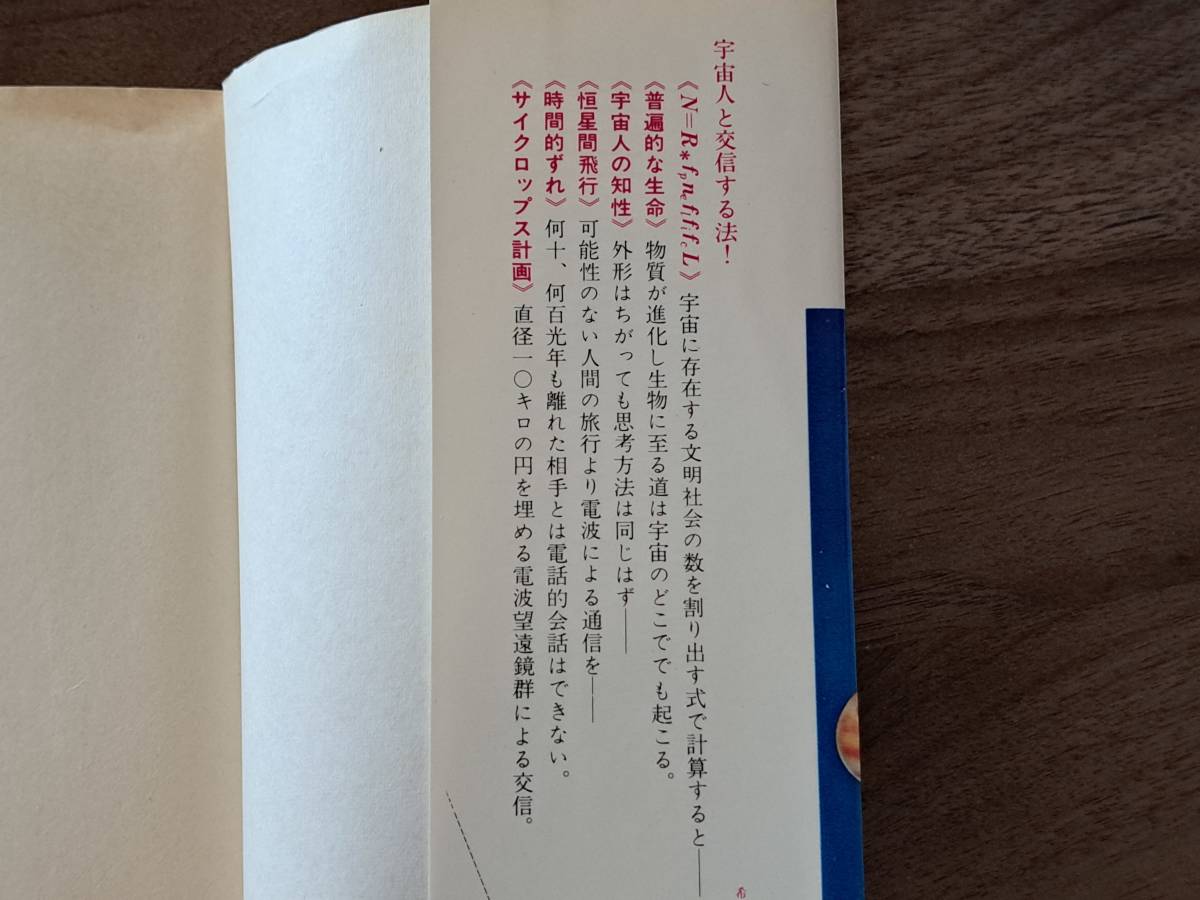 宇宙人と交信する法!
《N=R*fpneflfifcL》宇宙に存在する文明社会の数を割り出す式で計算すると——
《普遍的な生命》物質が進化し生物に至る道は宇宙のどこででも起こる。
《宇宙人の知性》外形はちがっても思考方法は同じはず——
《恒星間飛行》可能性のない人間の旅行より電波による通信を——
《時間的ずれ》何十、何百光年も離れた相手とは電話的会話はできない。
《サイクロップス計画》直径一〇キロの円を埋める電波望遠鏡群による交信。